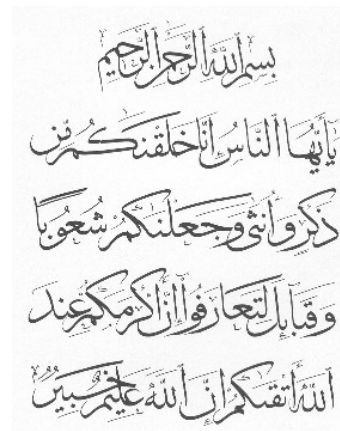 بسم الله الرحمن الرحيم
يأيها الناس إنا خلقنكم من
ذكر وأنثى وجعلنكم شعوبا
وقبايل لتعارفوا إن أكرمكم عند
الله أتقىكم إن الله عليم خبير